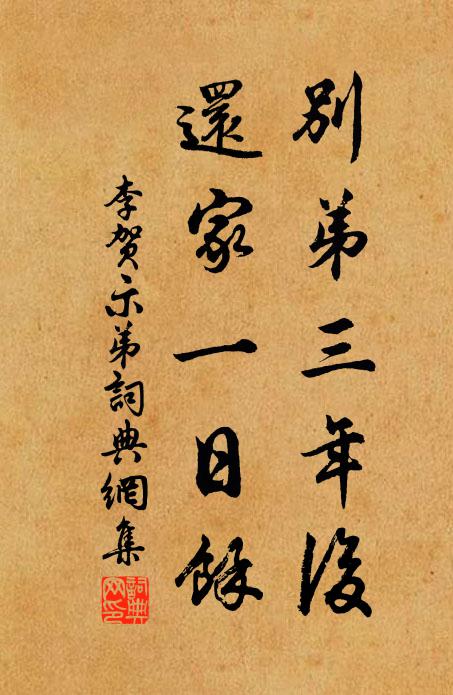 別弟三年後
還家一日餘
李賀示弟詞典網集
詞典网印